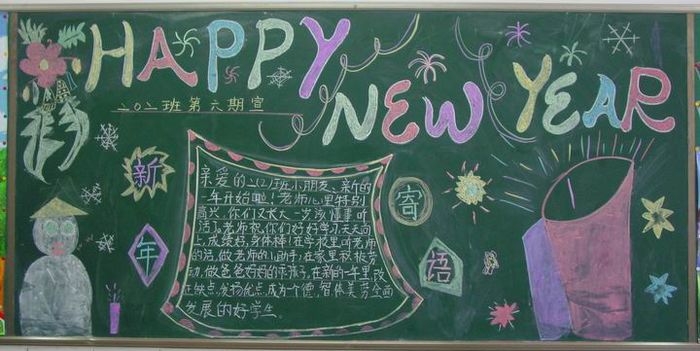 HAPPY
NEW YEAR
202班第六期宣
新年
寄语
亲爱的202班小朋友、新的
一年开始啦！老师心里特别
高兴，你们又长大一岁该懂事听
话了。老师祝你们好好学习天天向
上，成绩好，身体棒！在学校里听老师
的话，做老师的小助手；在家里积极劳
动，做爸爸妈妈的乖孩子，在新的一年里改
正缺点，发扬优点，成为一个德、智体美劳全面
发展的好学生。